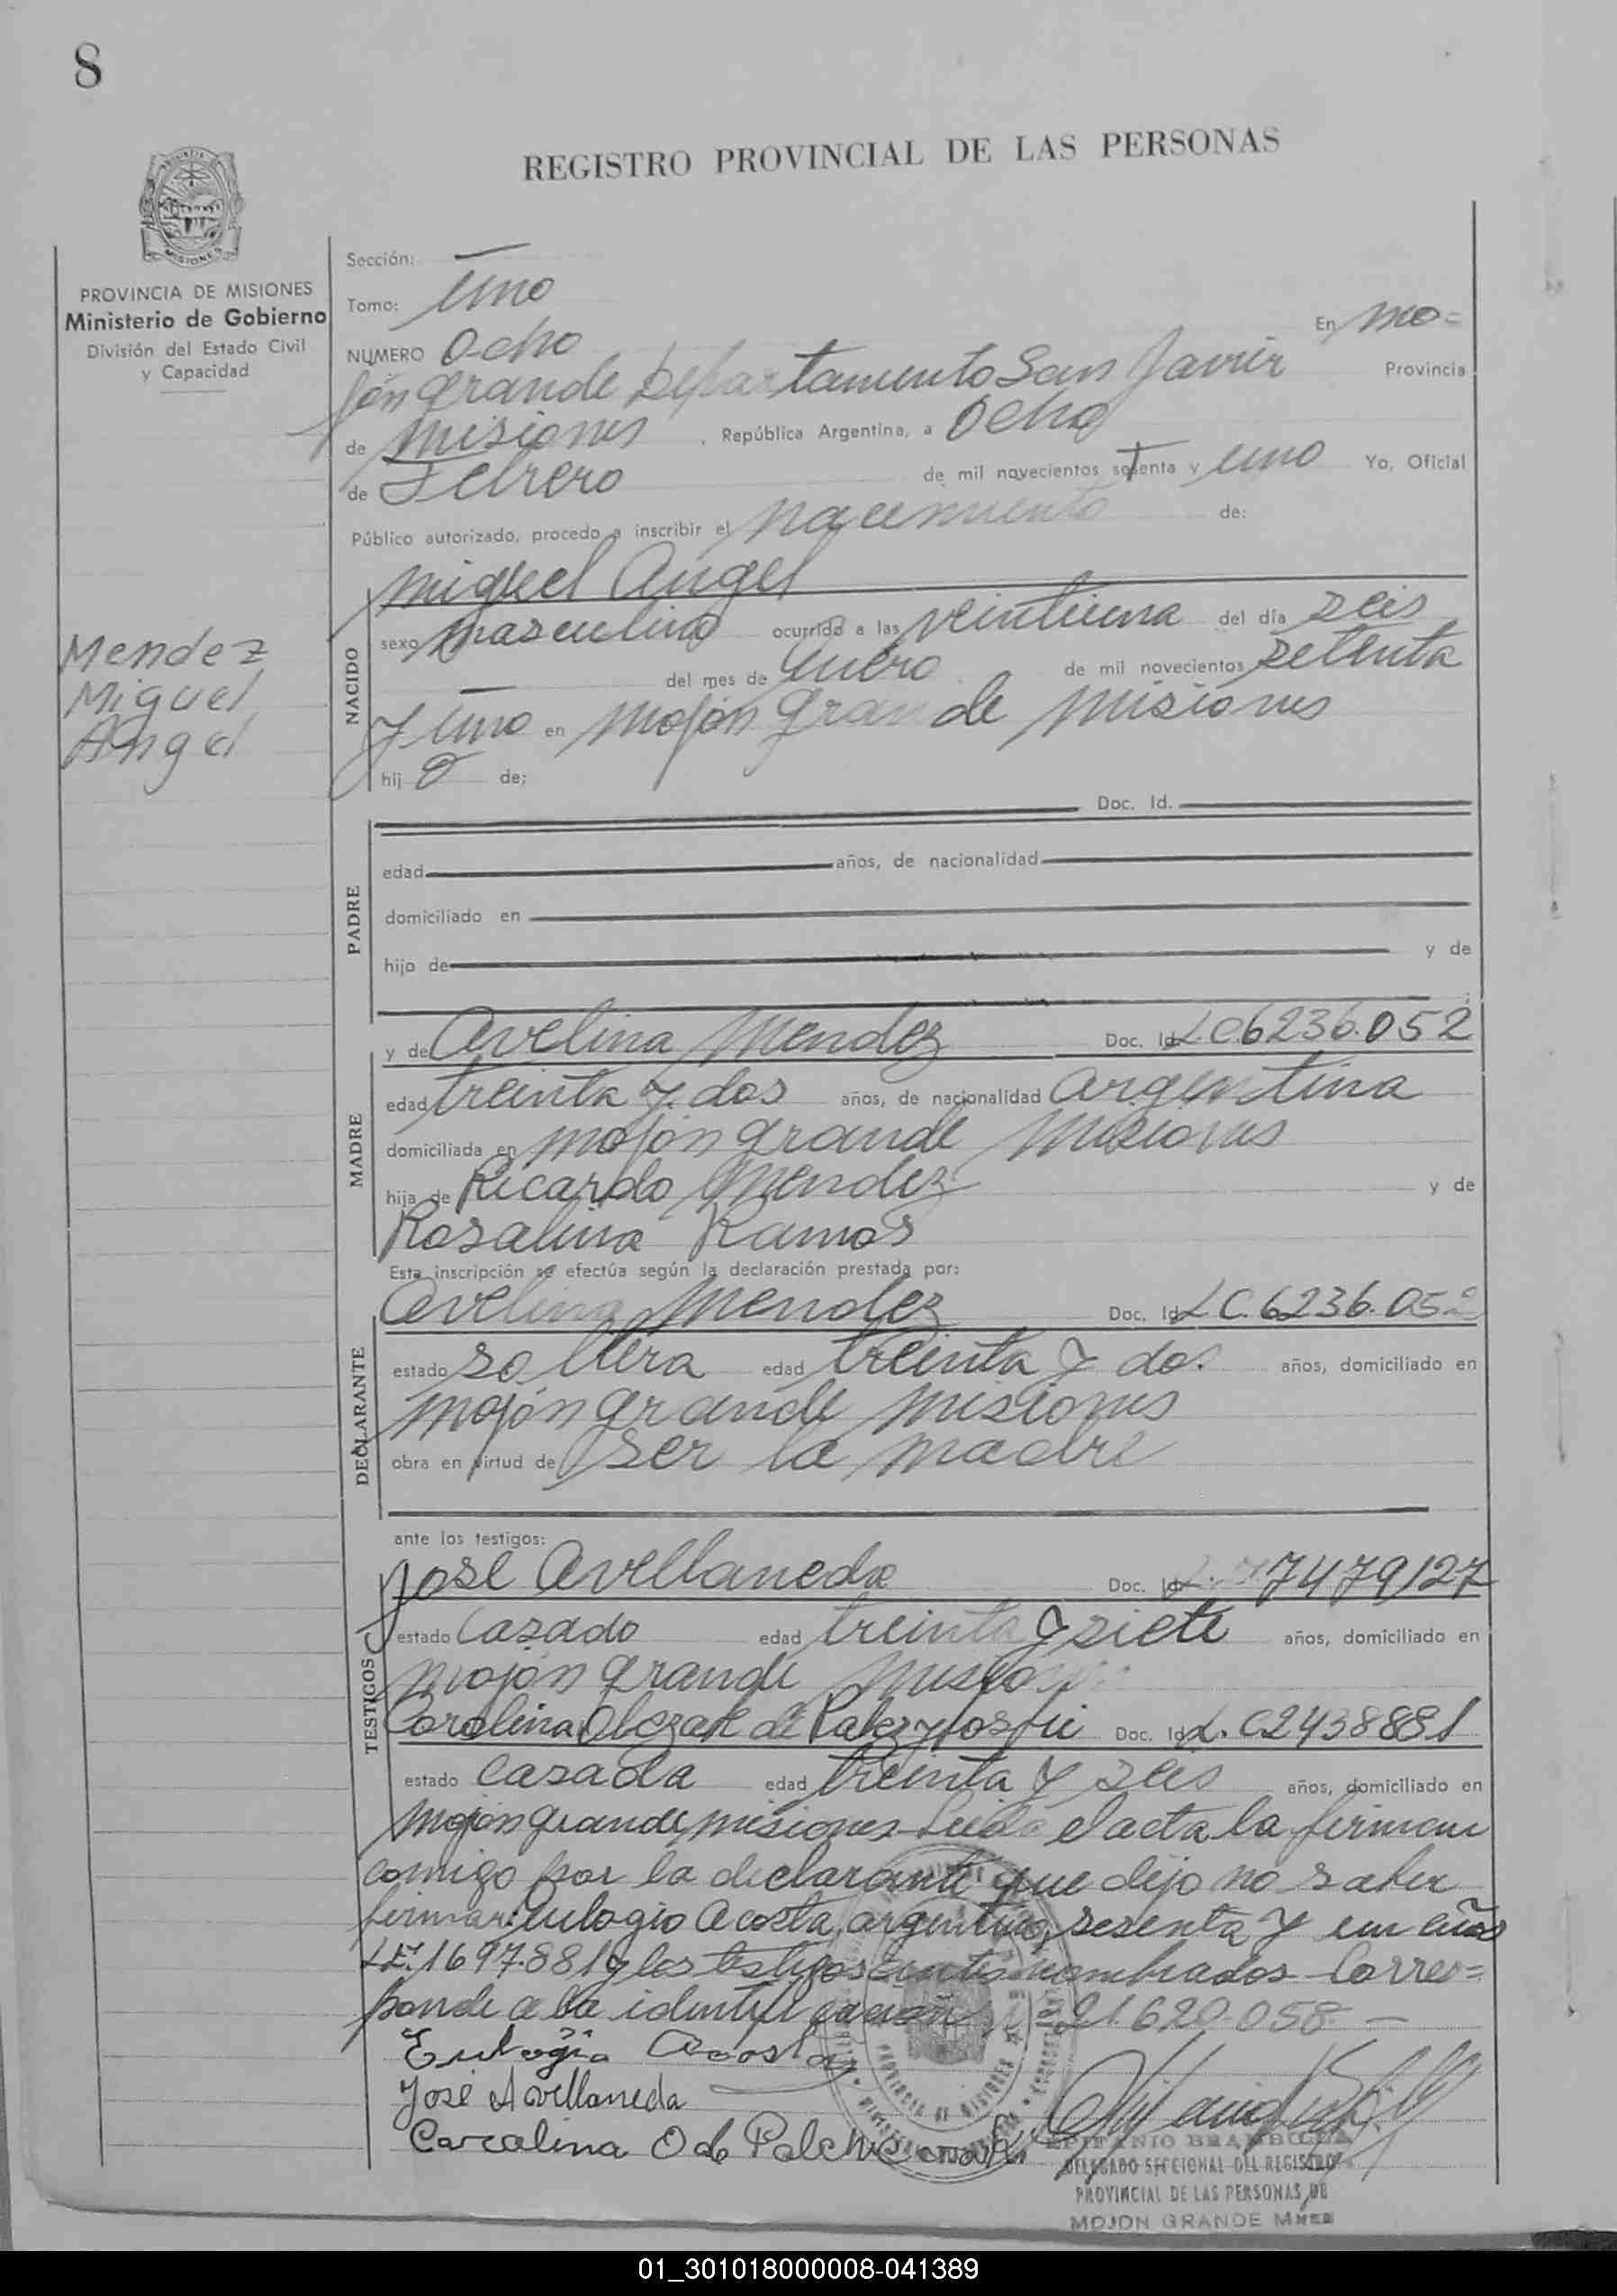 8
REGISTRO PROVINCIAL DE LAS PERSONAS
MISIONES
PROVINCIA DE MISIONES
Ministerio de Gobierno
División del Estado Civil
y Capacidad
Mendez
Miguel
Angel
Sección: —
Tomo: uno
En Mo=
NUMERO Ocho
jón grande Departamento San Javier Provincia
de Misiones, República Argentina, a Ocho
de Febrero de mil novecientos setenta y uno Yo, Oficial
Público autorizado, procedo a inscribir el nacimiento de:
NACIDO
Miguel Angel
sexo masculino ocurrido a las veintiuna del día seis
— del mes de Enero de mil novecientos setenta
y uno en Mojón grande Misiones
hij o de;
PADRE
Doc. Id.
edad años, de nacionalidad
domiciliado en
hijo de y de
MADRE
y de Avelina Mendez Doc. Id. LC6236.052
edad treinta y dos años, de nacionalidad Argentina
domiciliada en Mojón grande Misiones
hija de Ricardo Mendez y de
Rosalina Ramos
Esta inscripción se efectúa según la declaración prestada por:
DECLARANTE
Avelina Mendez Doc. Id. LC.6236.052
estado soltera edad treinta y dos años, domiciliado en
Mojón grande Misiones
obra en virtud de ser la madre
ante los testigos:
TESTIGOS
José Avellaneda Doc. Id. 7479127
estado casado edad treinta y siete años, domiciliado en
Mojón grande Misiones
Carolina de Doc. Id. L.C2438881
estado casada edad treinta y seis años, domiciliado en
Mojón grande, Misiones Leida el acta la firman
comigo por la declarante que dijo no saber
firmar: Eulogio Acosta, argentino, sesenta y un años
LE. 1697.881 y los testigos antes nombrados Corres=
ponde a la identificación Nº 21.620.058 —
Eulogio Acosta
José Avellaneda
Carolina O de
PROVINCIA DE MISIONES
EPIFANIO BRAMBILLA
DELEGADO SECCIONAL DEL REGISTRO
PROVINCIAL DE LAS PERSONAS DE
MOJON GRANDE MNES
01_301018000008-041389